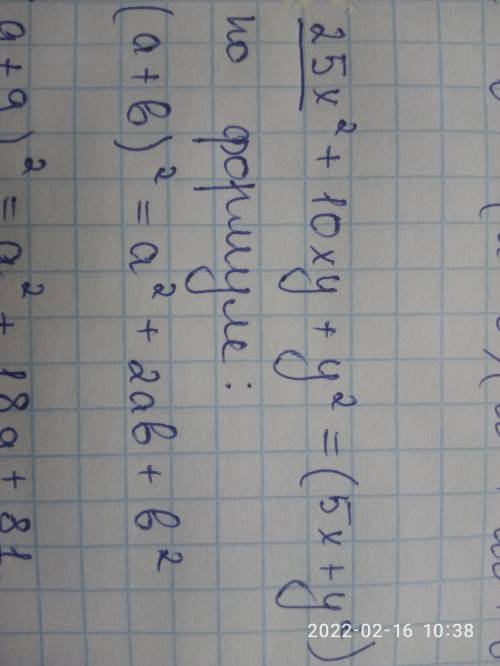 25x² + 10xy + y² = (5x + y²)
по формуле:
(а + в)² = а² + 2ав + в²
а + 9)² = а² + 18а + 81
2022-02-16 10:38